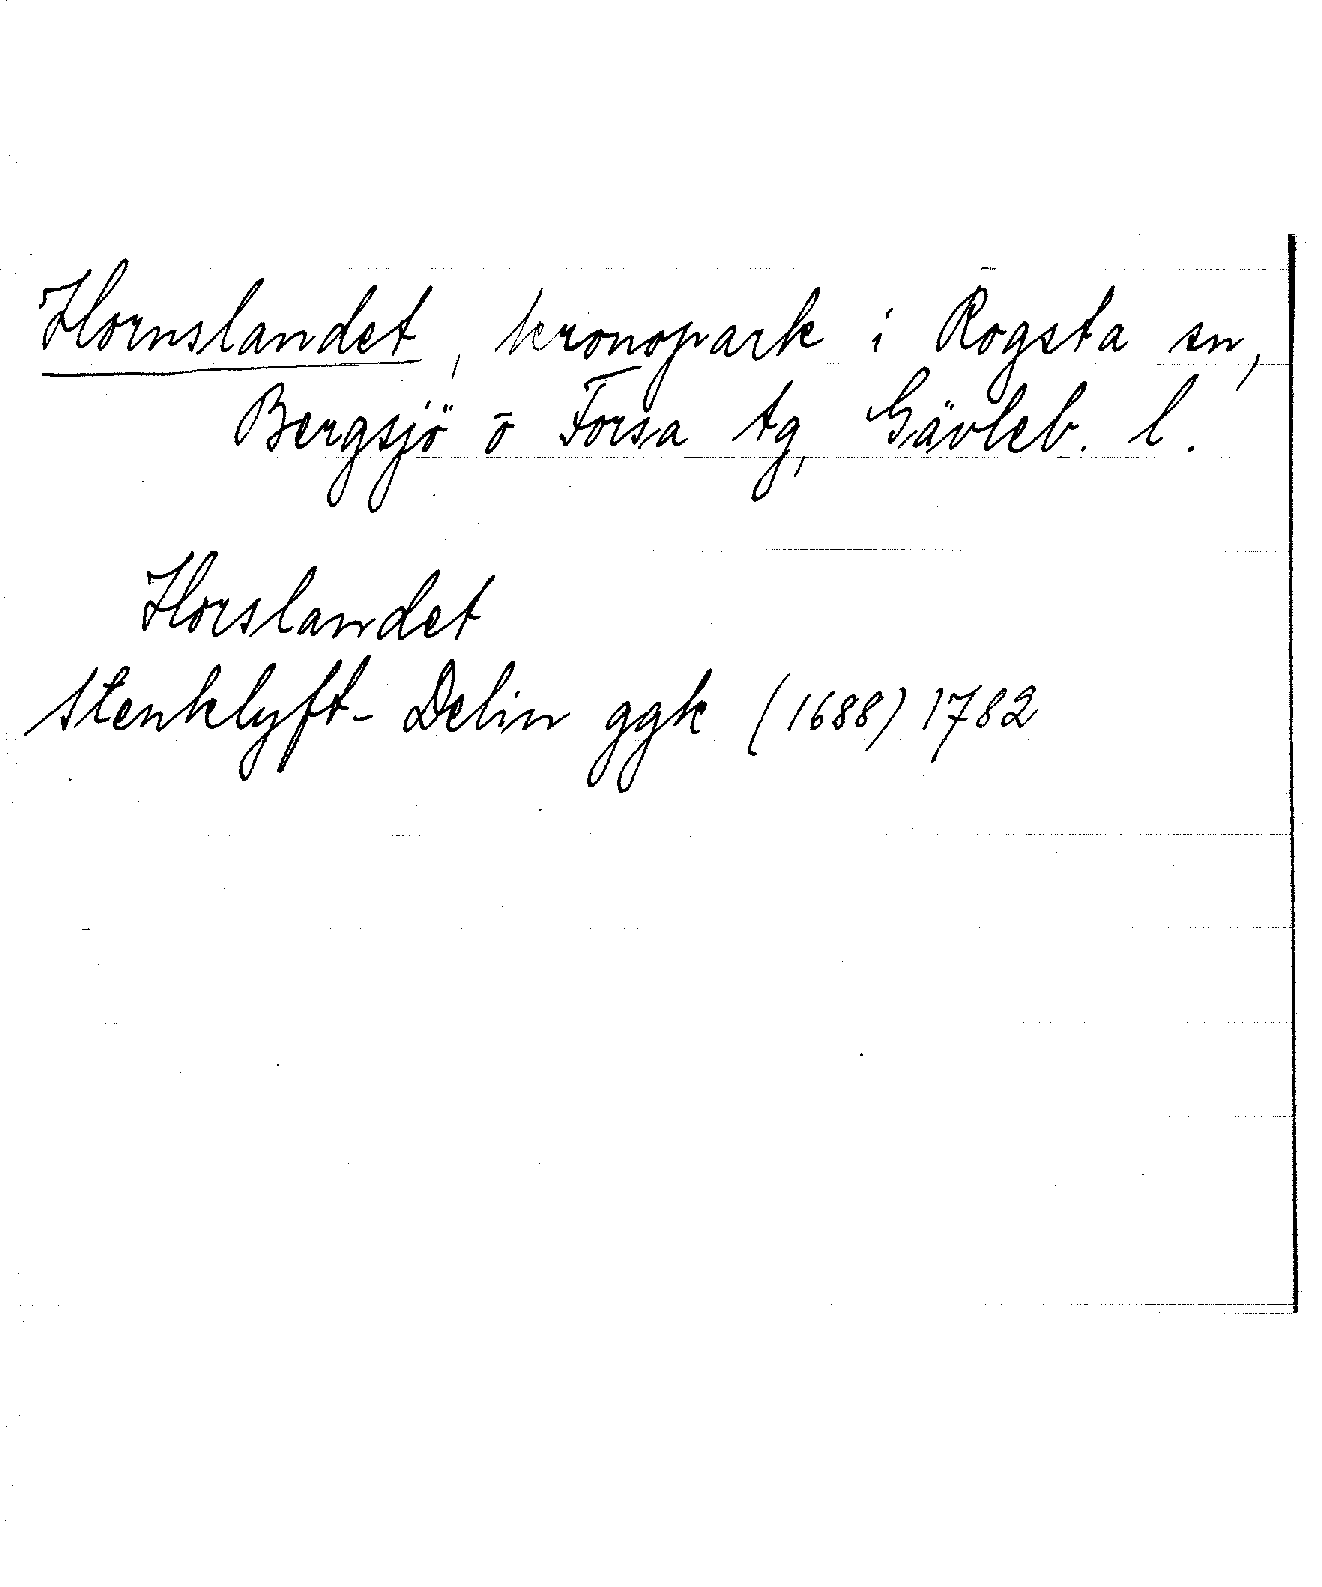 Hornslandet, kronopark i Rogsta sn,
Bergsjö o Forsa tg, Gävleb. l.
Horslandet
Stenklyft- Delin ggk (1688) 1782